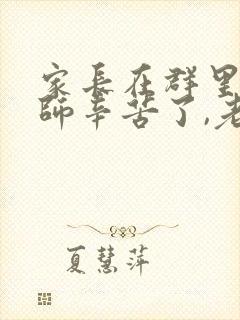 家长在群里
师辛苦了,老
夏慧萍